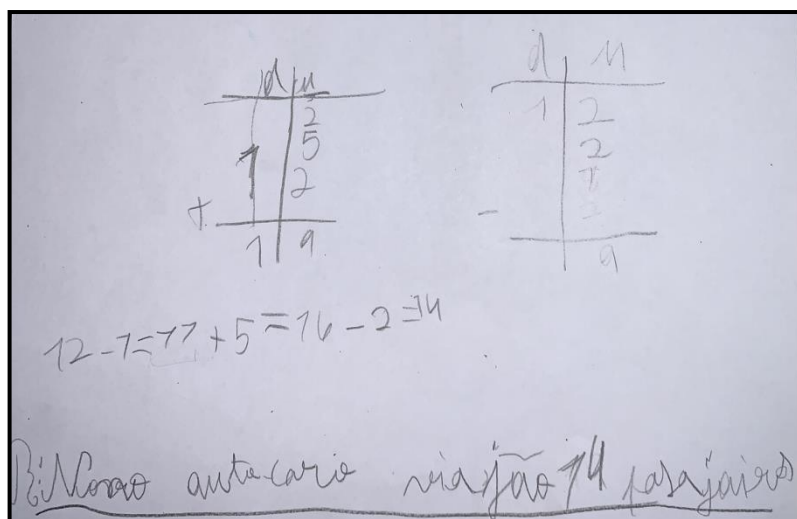 d u
2
5
1
2
+
1 9
d u
1 2
2
-
9
12-1=11+5=16-2=14
R: autocario viajão 14 pasajairos